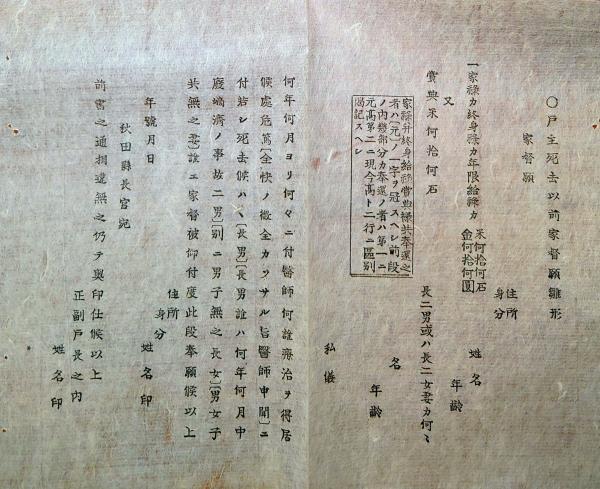 〇戸主死去以前家督願雛形
家督願
住所
身分
姓名
年齢
一家祿カ終身祿カ年限給祿カ
米何拾何石
金何拾何圓
又
賞典米何拾何石
長二男或ハ長二女妻カ何〻
名
年齢
家祿并終身給祿賞典祿共奉還之
者ハ〔元〕ノ一字ヲ冠スヘシ前段
ノ内幾部分カ奉還ノ者ハ第一ニ
元高第二ニ現今高ト二行ニ區別
偈記スヘシ
私儀
何年何月ヨリ何々ニ付醫師何誰療治ヲ得居
候處危篤〔全快ノ徴全カラサル旨醫師申聞〕ニ
付若シ死去候ハヽ〔長男〕〔長男誰ハ何年何月中
癈嫡濟ノ事故二男〕別ニ男子無之長女〔男女子
共無之妻〕誰エ家督被仰付度此段奉願候以上
住所
身分
年號月日
姓名印
秋田縣長官宛
前書之通相違無之仍テ奥印仕候以上
正副戸長之内
姓名印